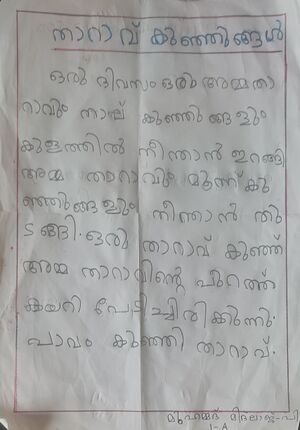 താറാവ് കുഞ്ഞുങ്ങൾ
ഒരു ദിവസം ഒരു അമ്മ താ
റാവും നാല് കുഞ്ഞുങ്ങളും
കുളത്തിൽ നീന്താൻ ഇറങ്ങി
അമ്മ താറാവും മൂന്ന് കു
ഞ്ഞുങ്ങളും നീന്താൻ തു
ടങ്ങി. ഒരു താറാവ് കുഞ്ഞ്
അമ്മ താറാവിന്റെ പുറത്ത്
കയറി പേടിച്ചിരിക്കുന്നു.
പാവം കുഞ്ഞി താറാവ്.
മുഹമ്മദ് മിദ്‌ലാജ്-പി
1-A